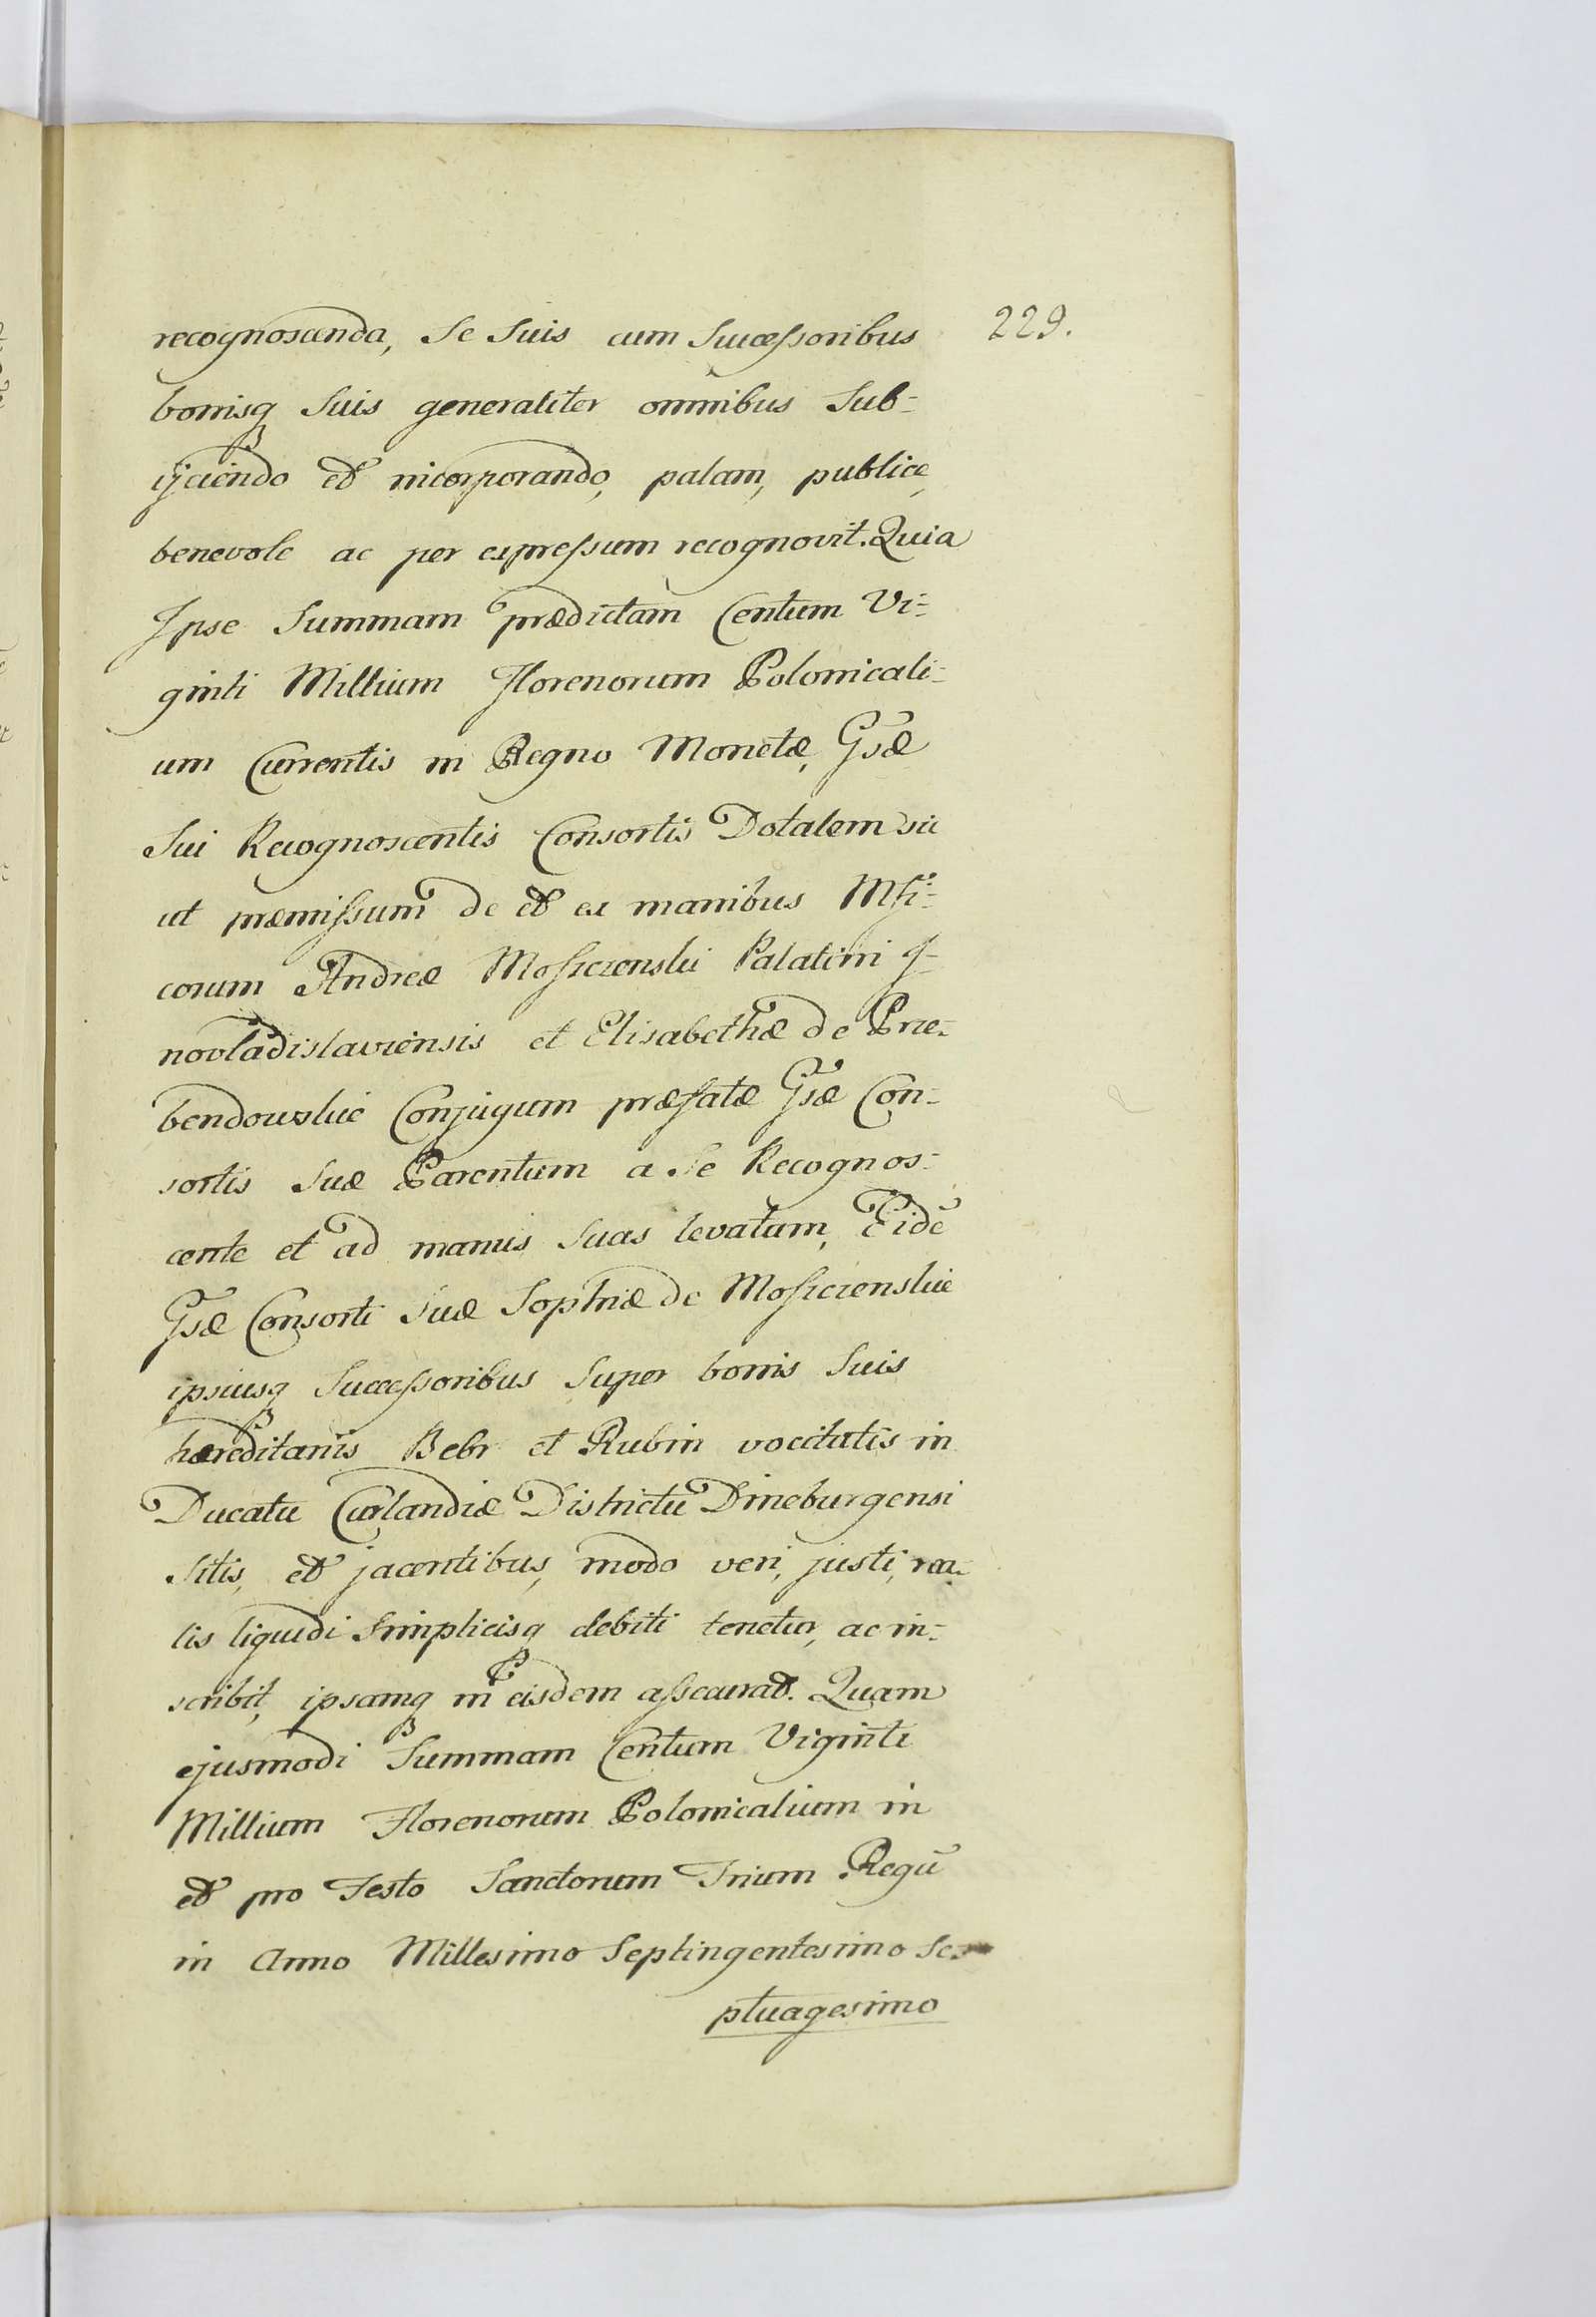 229.
recognoscenda, Se Suis cum Successoribus
bonisq̃ Suis generaliter omnibus Sub-
ijciendo et incorporando, palam, publice,
benevole ac per expressum recognovit. Quia
Ipse Summam prædictam Centum Vi-
ginti Millium Florenorum Polonicali-
um Currentis in Regno Monetæ, Gsæ
Sui Recognoscentis Consortis Dotalem sic
ut præmissum de et ex manibus Mfi-
corum Andreæ Moszczenski Palatini I-
novladislaviensis et Elisabethæ de Prze-
bendowskie Conjugum præfatæ Gsæ Con-
sortis Suæ Parentum a Se Recognos-
cente et ad manus Suas levatam, Eidē
Gsæ Consorti Suæ Sophiæ de Moszczenskie
ipsiusq̃ Successoribus Super bonis Suis
hæreditariis Bebr et Rubin vocitatis in
Ducatu Curlandiæ Districtu Dineburgensi
Sitis, et jacentibus, modo veri, justi, rea-
lis liquidi Simplicisq̃ debiti tenetur, ac in-
scribit, ipsamq̃ in eisdem assecurat. Quam
ejusmodi Summam Centum Viginti
Millium Florenorum Polonicalium in
et pro Festo Sanctorum Trium Regū
in Anno Millesimo Septingentesimo Se-
ptuagesimo